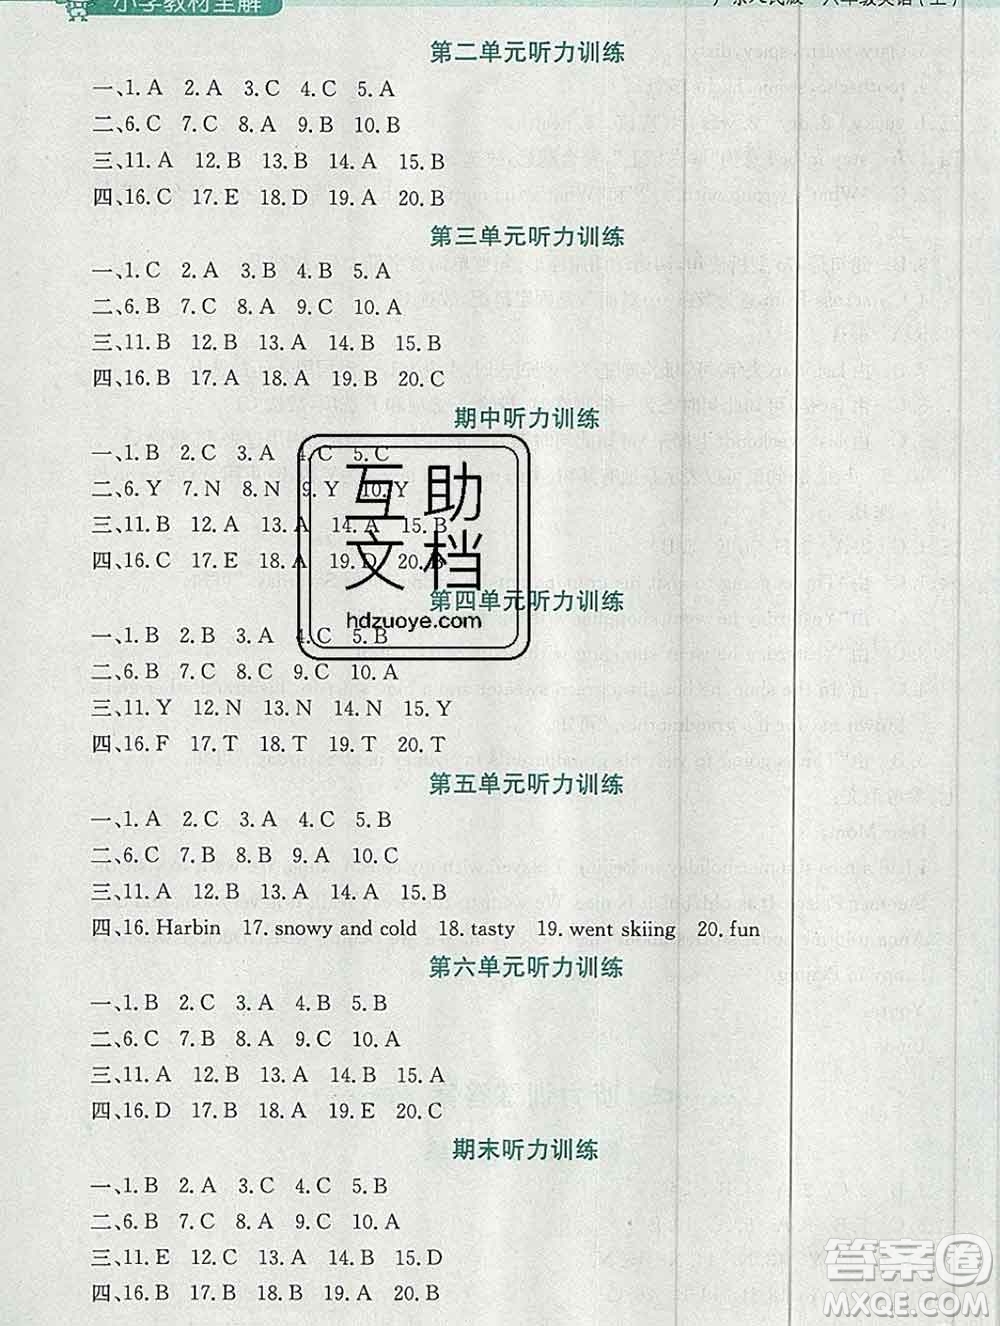 小学教材全解
广东人民版 六年级英语(上)
第二单元听力训练
一、1. A 2. A 3. C 4. C 5. A
二、6. C 7. C 8. A 9. B 10. B
三、11. A 12. B 13. B 14. A 15. B
四、16. C 17. E 18. D 19. A 20. B
第三单元听力训练
一、1. C 2. A 3. B 4. B 5. A
二、6. B 7. C 8. A 9. C 10. A
三、11. B 12. B 13. A 14. A 15. B
四、16. B 17. A 18. A 19. B 20. C
期中听力训练
一、1. B 2. C 3. A 4. C 5. C
二、6. Y 7. N 8. N 9. Y 10. Y
三、11. B 12. A 13. A 14. A 15. B
四、16. C 17. E 18. A 19. D 20. B
互助
文档
hdzuoye.com
第四单元听力训练
一、1. B 2. B 3. A 4. C 5. B
二、6. B 7. C 8. C 9. C 10. A
三、11. Y 12. N 13. N 14. N 15. Y
四、16. F 17. T 18. T 19. T 20. T
第五单元听力训练
一、1. A 2. A 3. C 4. A 5. B
二、6. C 7. A 8. B 9. B 10. C
三、11. A 12. B 13. A 14. A 15. B
四、16. Harbin 17. snowy and cold 18. tasty 19. went skiing 20. fun
第六单元听力训练
一、1. B 2. C 3. A 4. B 5. B
二、6. C 7. A 8. A 9. C 10. A
三、11. A 12. B 13. B 14. A 15. A
四、16. D 17. B 18. A 19. E 20. C
期末听力训练
一、1. B 2. A 3. A 4. C 5. B
二、6. B 7. C 8. A 9. B 10. A
三、11. E 12. C 13. A 14. B 15. D
四、16. B 17. B 18. A 19. A 20. B
答案圈
MXQE.COM